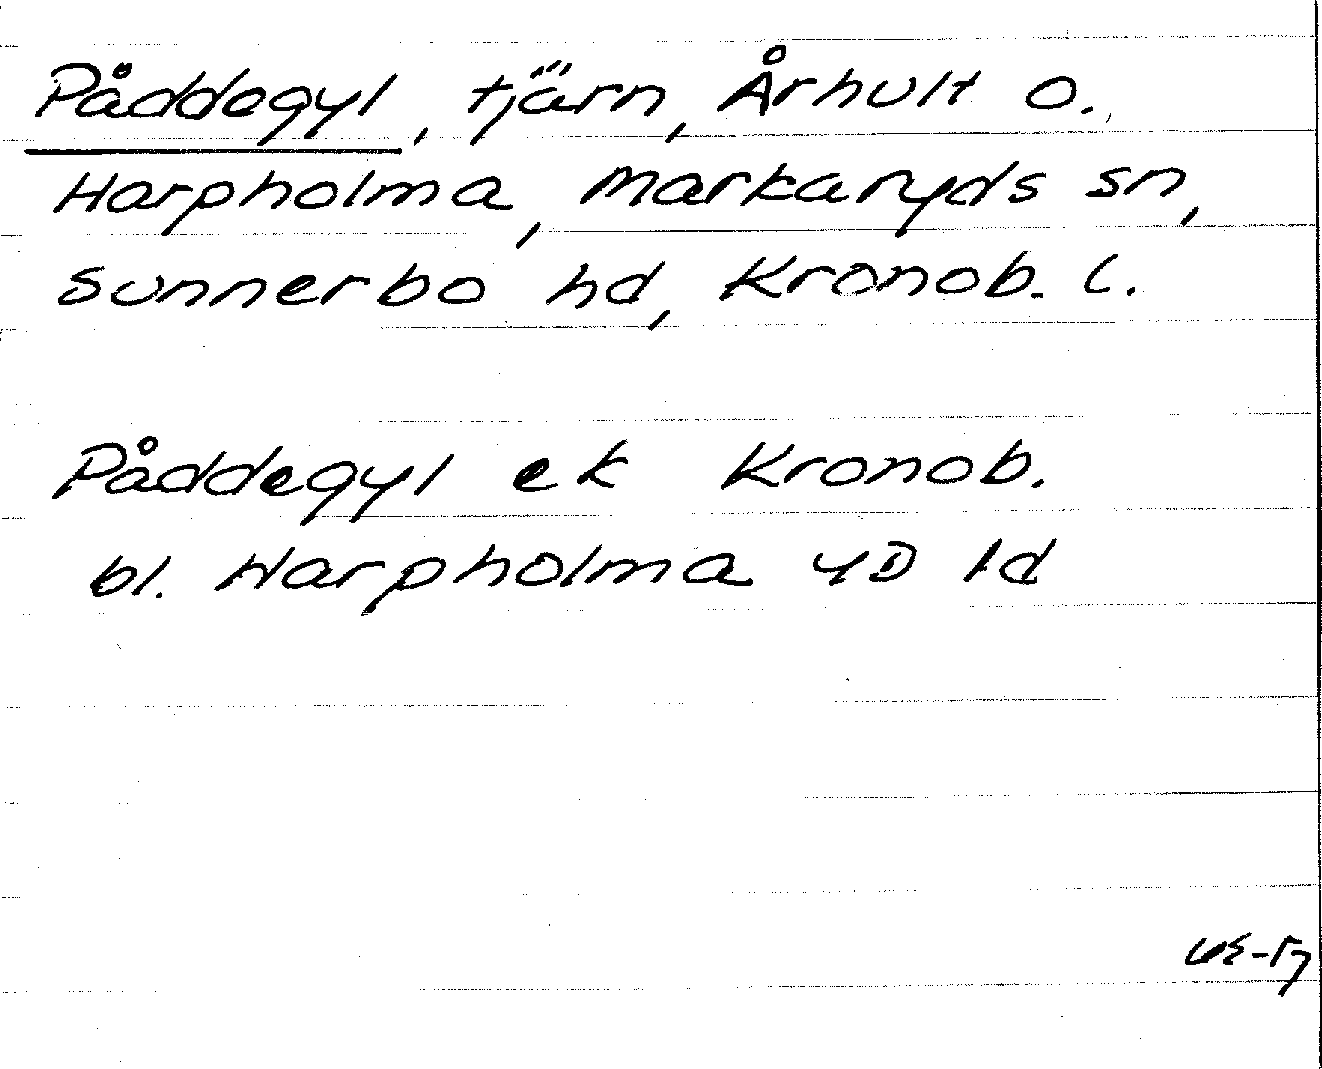 Påddegyl, tjärn, Århult o.
Harpholma, Markaryds sn,
Sunnerbo hd, Kronob. l.
Påddegyl ek Kronob.
bl. Harpholma 4D 1d